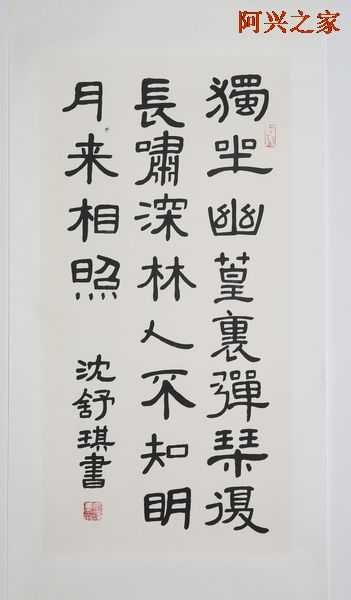 阿兴之家
獨坐幽篁裏彈琴復
長嘯深林人不知明
月来相照
沈舒琪書